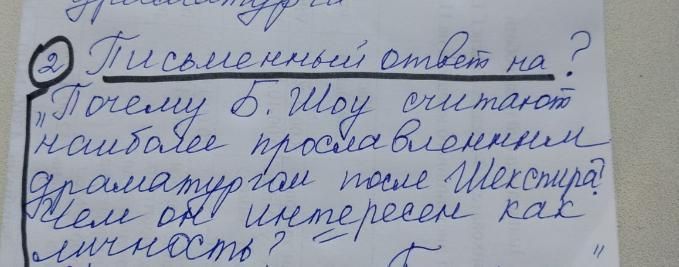 драматурги
② Письменный ответ на?
„Почему Б. Шоу считают
наиболее прославленным
драматургом после Шекспира?
Чем он интересен как
личность?"